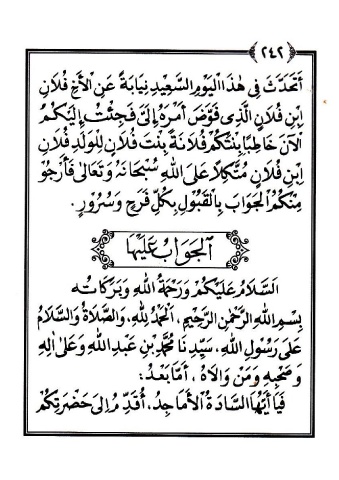 ٢٤٢
أَتَحَدَّثُ فِى هٰذَا الْيَوْمِ السَّعِيْدِ نِيَابَةً عَنِ الْأَخِ فُلَانِ
ابْنِ فُلَانٍ الَّذِى فَوَّضَ أَمْرَهُ إِلَىَّ فَجِئْتُ إِلَيْكُمْ
الْآنَ خَاطِبًا بِنْتَكُمْ فُلَانَةَ بِنْتَ فُلَانٍ لِلْوَلَدِ فُلَانِ
ابْنِ فُلَانٍ مُتَّكِلًا عَلَى اللهِ سُبْحَانَهُ وَتَعَالَى فَأَرْجُوْ
مِنْكُمُ الْجَوَابَ بِالْقَبُوْلِ بِكُلِّ فَرَحٍ وَسُرُوْرٍ.
اَلْجَوَابُ عَلَيْهَا
اَلسَّلَامُ عَلَيْكُمْ وَرَحْمَةُ اللهِ وَبَرَكَاتُه
بِسْمِ اللهِ الرَّحْمٰنِ الرَّحِيْمِ، اَلْحَمْدُ لِلّٰهِ، وَالصَّلَاةُ وَالسَّلَامُ
عَلَى رَسُوْلِ اللهِ، سَيِّدِنَا مُحَمَّدِ بْنِ عَبْدِ اللهِ وَعَلَى اٰلِهِ
وَصَحْبِهِ وَمَنْ وَالَاهُ، أَمَّا بَعْدُ:
فَيَا أَيُّهَا السَّادَةُ الْأَمَاجِدُ، أُقَدِّمُ إِلَى حَضْرَتِكُمْ